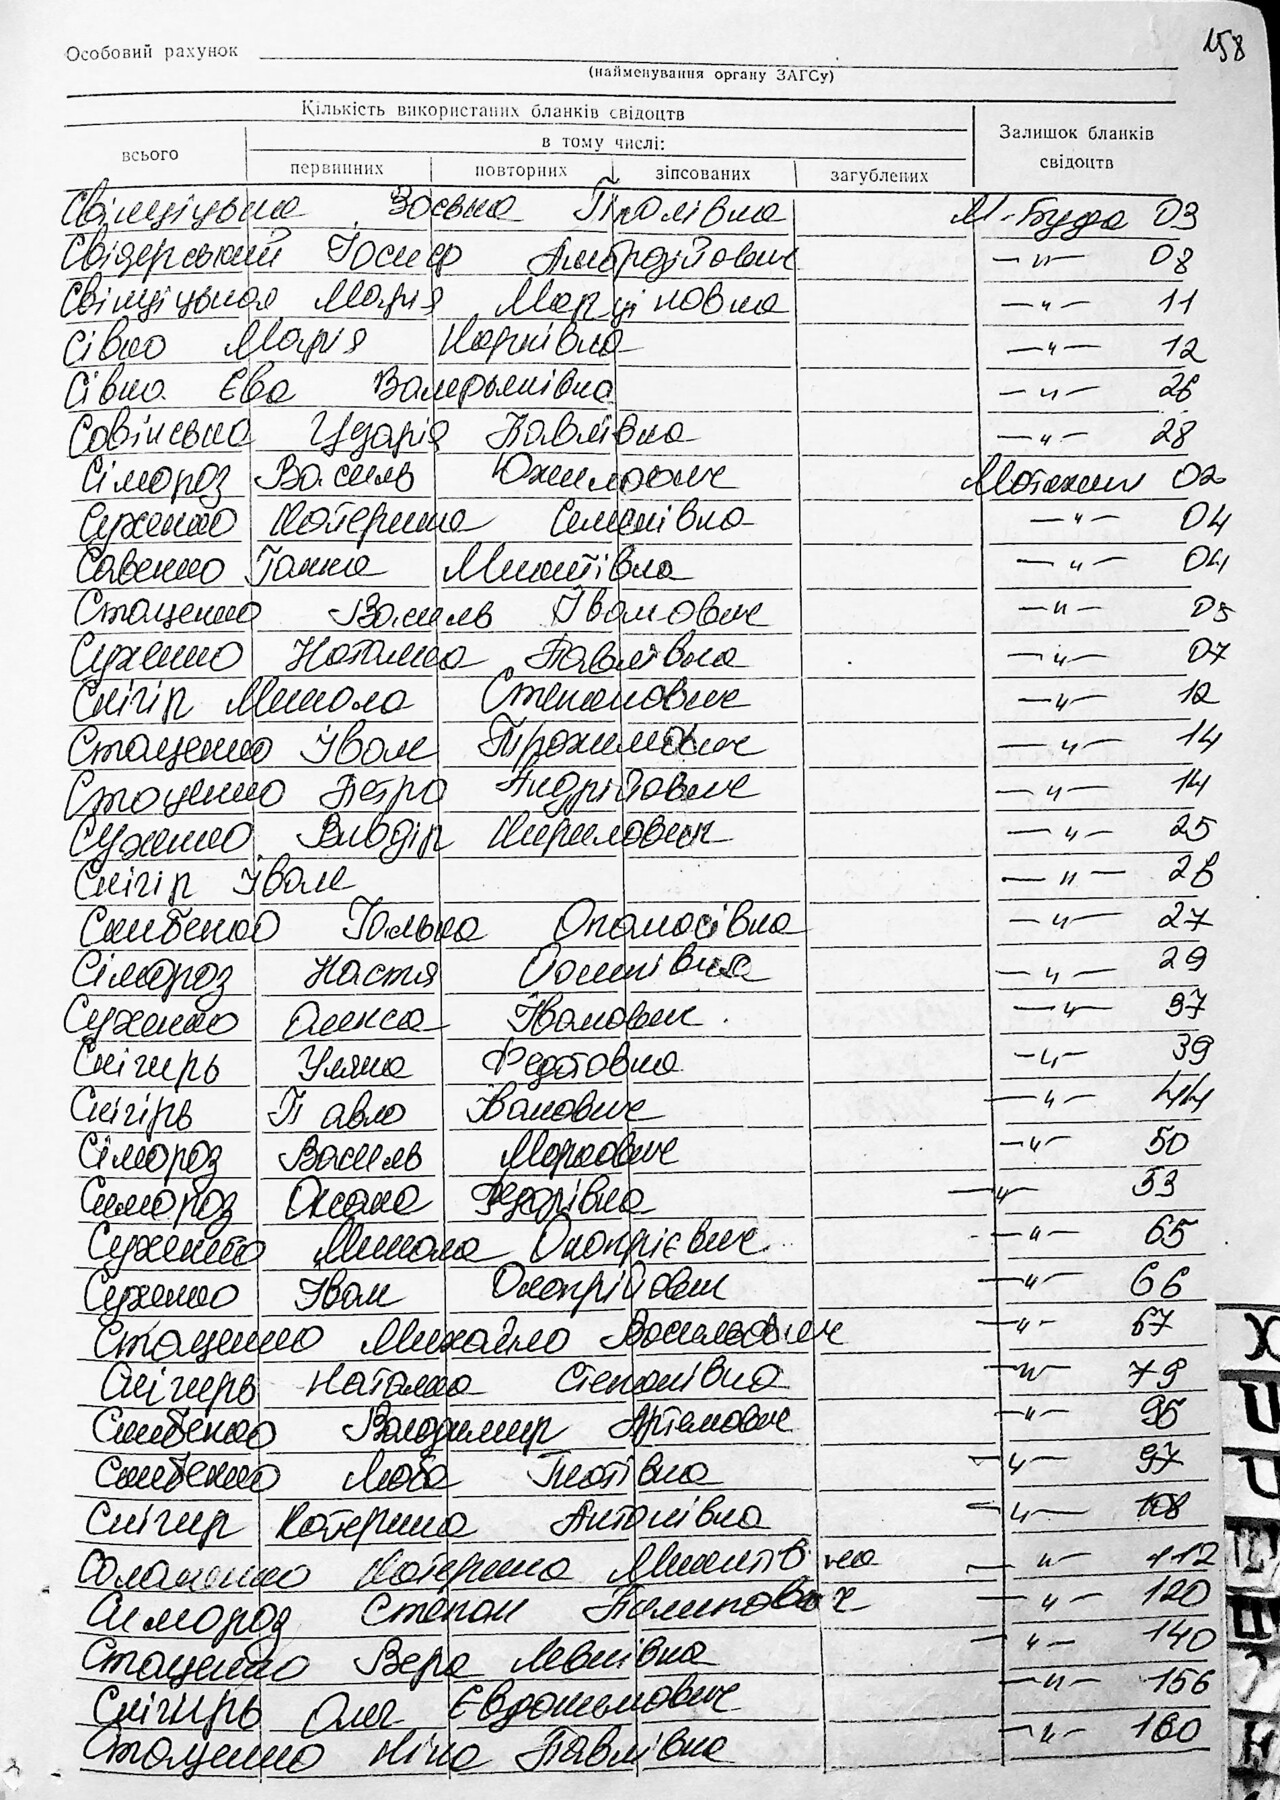 158
Особовий рахунок
(найменування органу ЗАГСу)
Кількість використаних бланків свідоцтв
Залишок бланків свідоцтв
всього
в тому числі:
первинних повторних зіпсованих загублених
М-Буда 03
Свідерський Йосиф —"— 08
Марія —"— 11
Сівко Марія Карпівна —"— 12
Сівко Єва Валерьянівна —"— 26
Савінська Павлівна —"— 28
Сімороз Василь Юхимович Мотижин 02
Сухенко Катерина Семенівна —"— 04
Савенко Ганна Микитівна —"— 04
Стаценко Василь Іванович —"— 05
Сухенко Наталка Павлівна —"— 07
Снігір Микола Степанович —"— 12
Стаценко Іван Трохимович —"— 14
Стаценко Петро Андрійович —"— 14
Сухенко Кирилович —"— 25
Снігір Іван —"— 26
Скибенко Галька Опанасівна —"— 27
Сімороз Настя —"— 29
Сухенко Олекса Іванович —"— 37
Снігирь Уляна Федотовна —"— 39
Снігірь Павло Іванович —"— 44
Сімороз Василь Маркович —"— 50
Симороз Оксана Федорівна —"— 53
Сухенко Микола Онопрієвич —"— 65
Сухенко Іван Онопрійович —"— 66
Стаценко Михайло Васильович —"— 67
Снігирь Наталка Степанівна —"— 79
Скибенко Володимир Артемович —"— 96
Скибенко Люба Гнатівна —"— 97
Снігир Катерина Антонівна —"— 108
Соломенко Катерина Микитівна —"— 112
Симороз Степан Пилипович —"— 120
Стаценко Вера Левківна —"— 140
Снігирь Олег Євдокимович —"— 156
Стаценко Ніна Павлівна —"— 160